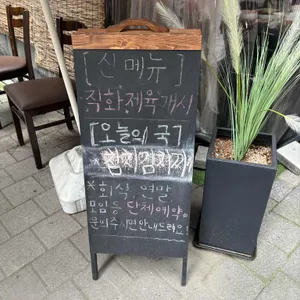 [신메뉴]
직화제육개시
[오늘의 국]
*참치김치찌
*회식, 연말
모임등 단체예약
문의주시면 안내드려요!